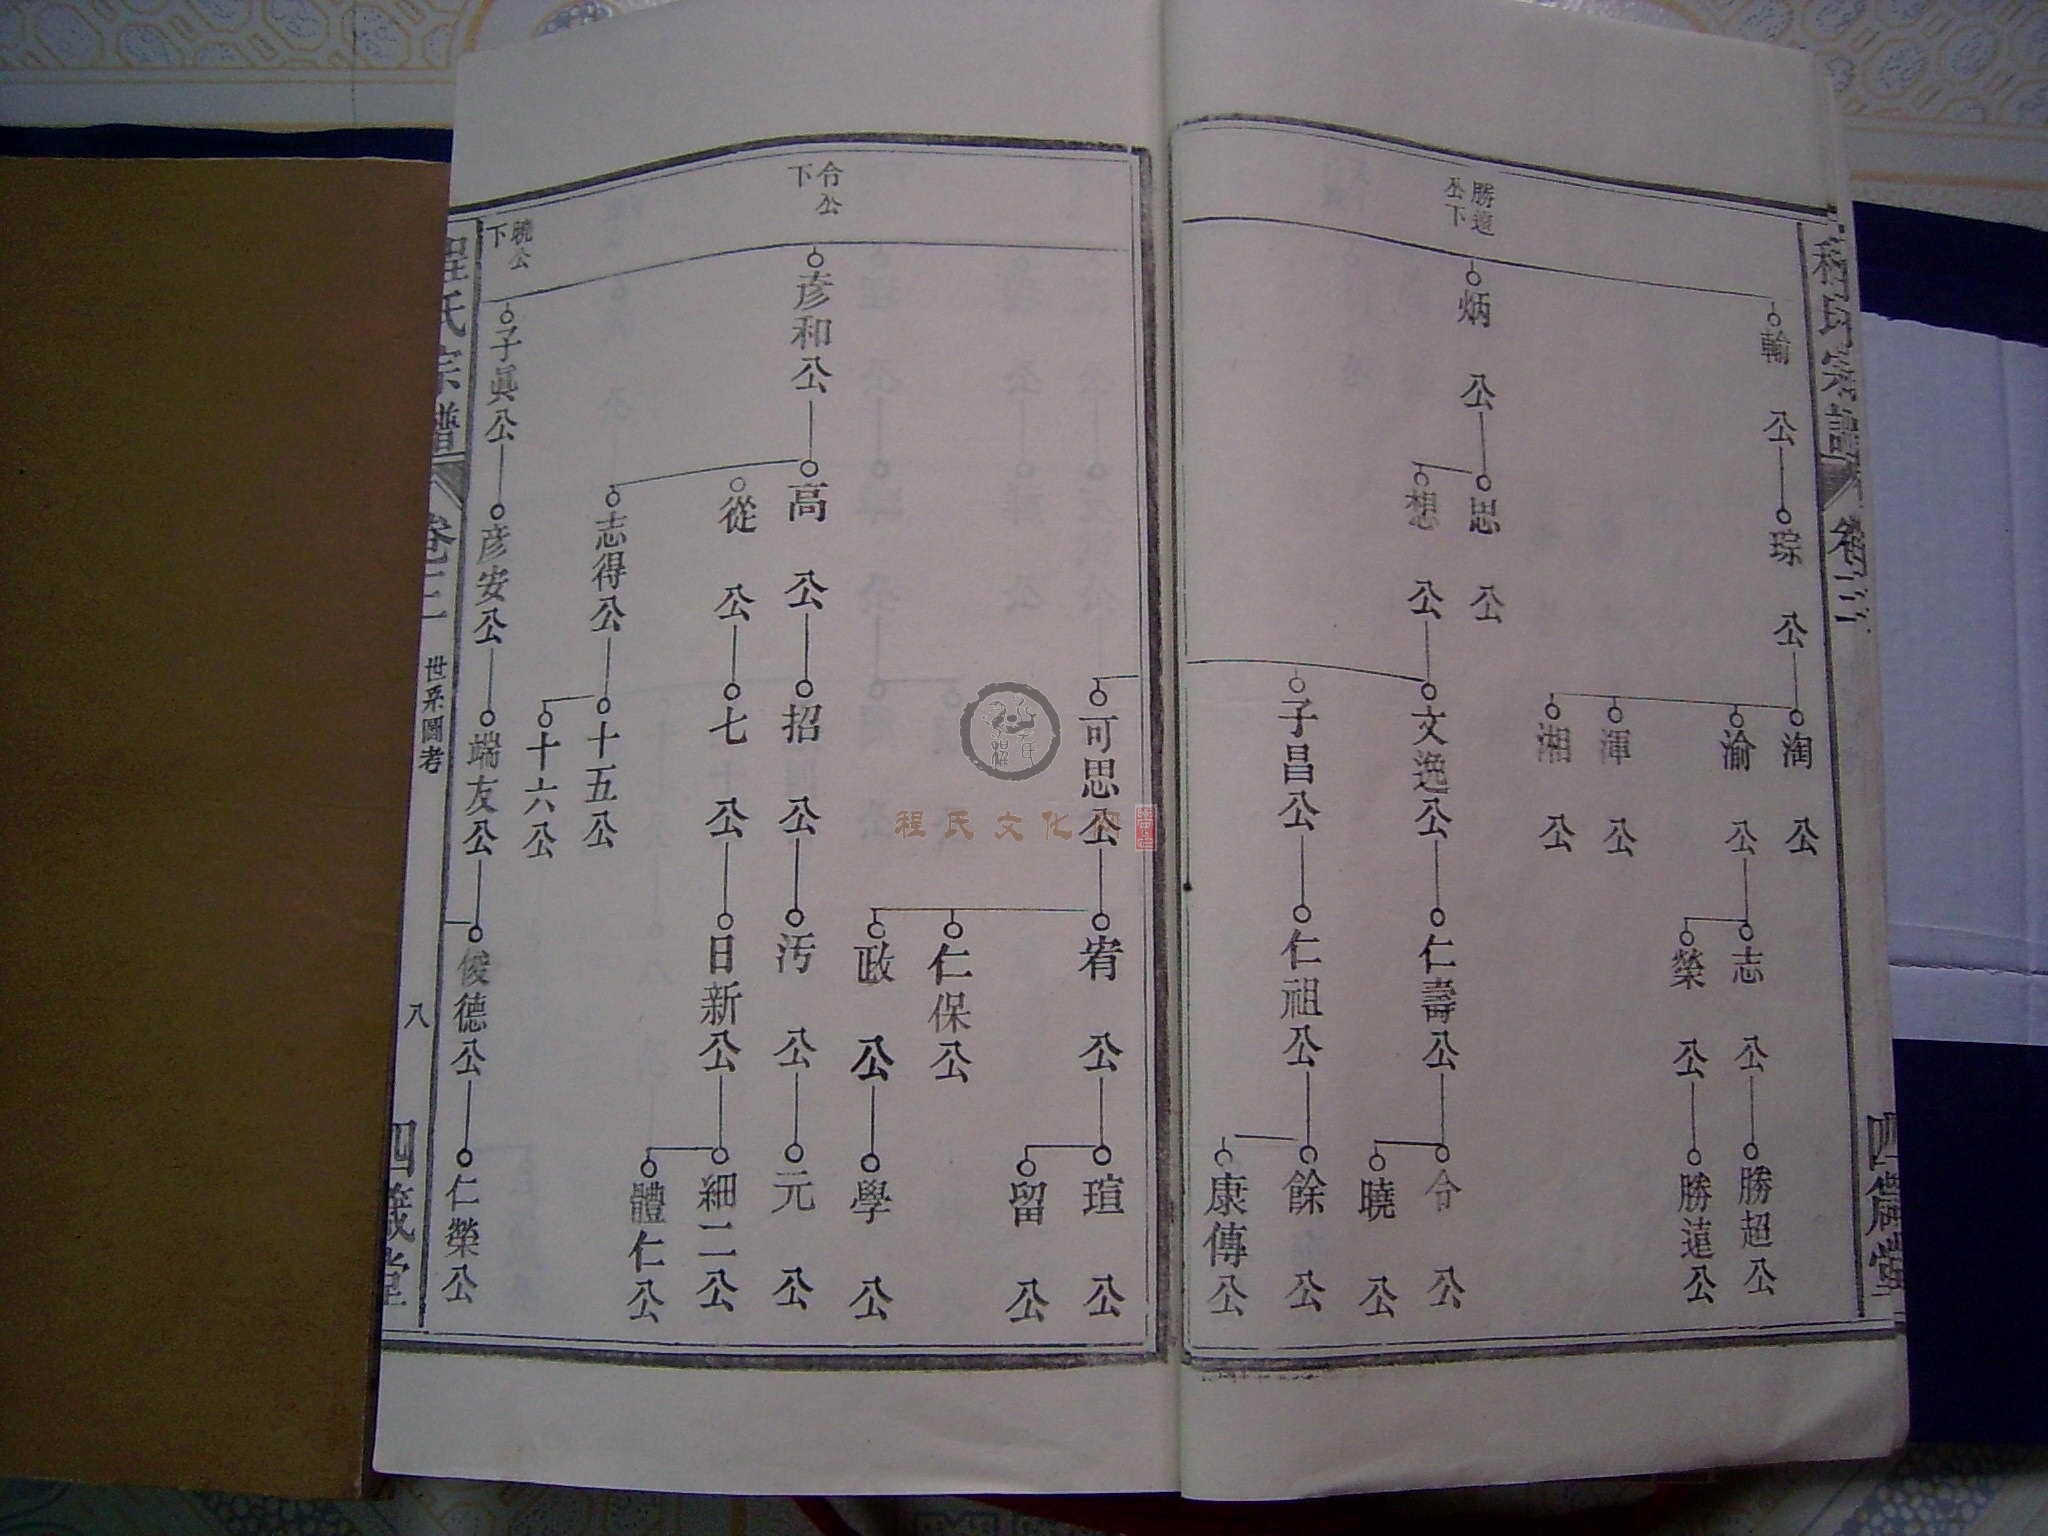 程氏宗譜
卷三
四箴堂
輸公
琮公
淘公
渝公
渾公
湘公
志公
榮公
勝超公
勝遠公
勝遠公下
炳公
思公
想公
文逸公
子昌公
仁壽公
仁祖公
令公
曉公
餘公
康傳公
可思公
宥公
仁保公
政公
瑄公
留公
學公
令公下
彦和公
高公
從公
志得公
招公
七公
十五公
十六公
汚公
日新公
元公
細二公
體仁公
曉公下
子眞公
彦安公
端友公
俊德公
仁榮公
程氏宗譜
卷三
世系圖考
八
四箴堂
程氏文化